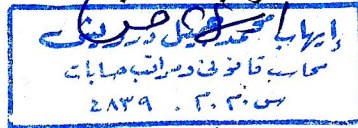 إيهاب محمد نبيل درويش
محاسب قانوني ومراقب حسابات
س.م.م. ٢٨٣٩